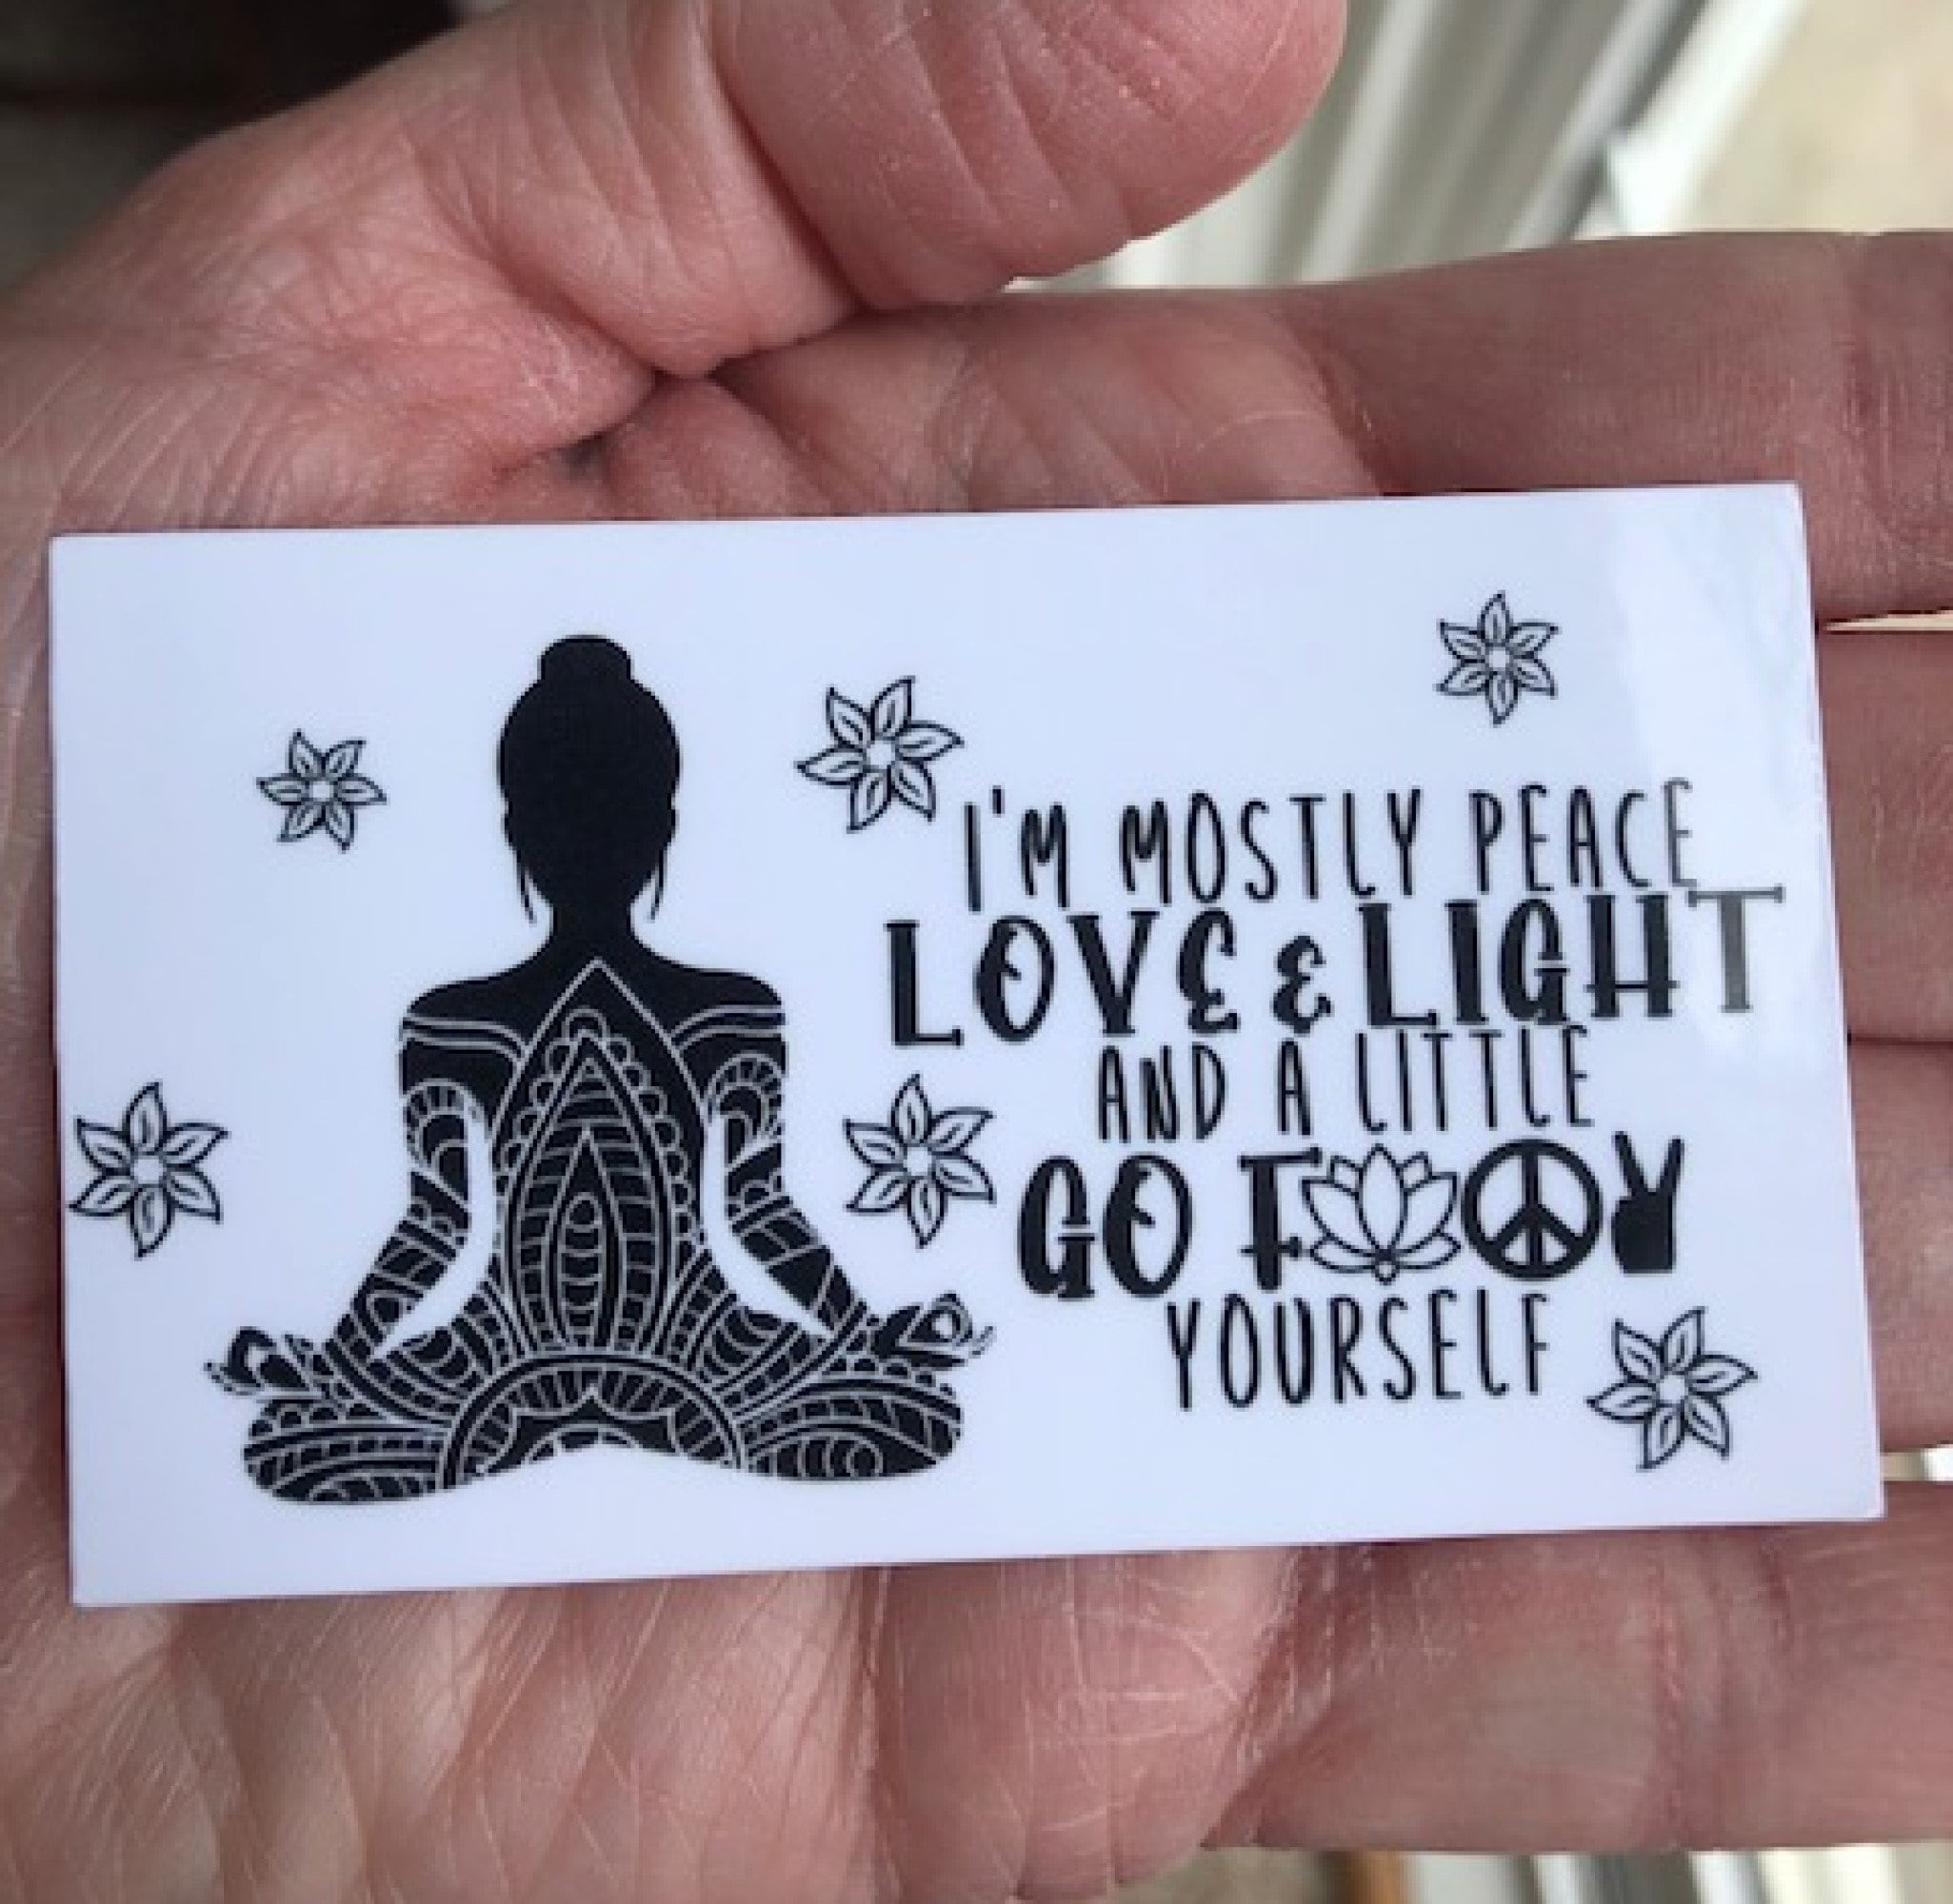 I'M MOSTLY PEACE
LOVE & LIGHT
AND A LITTLE
GO F
YOURSELF